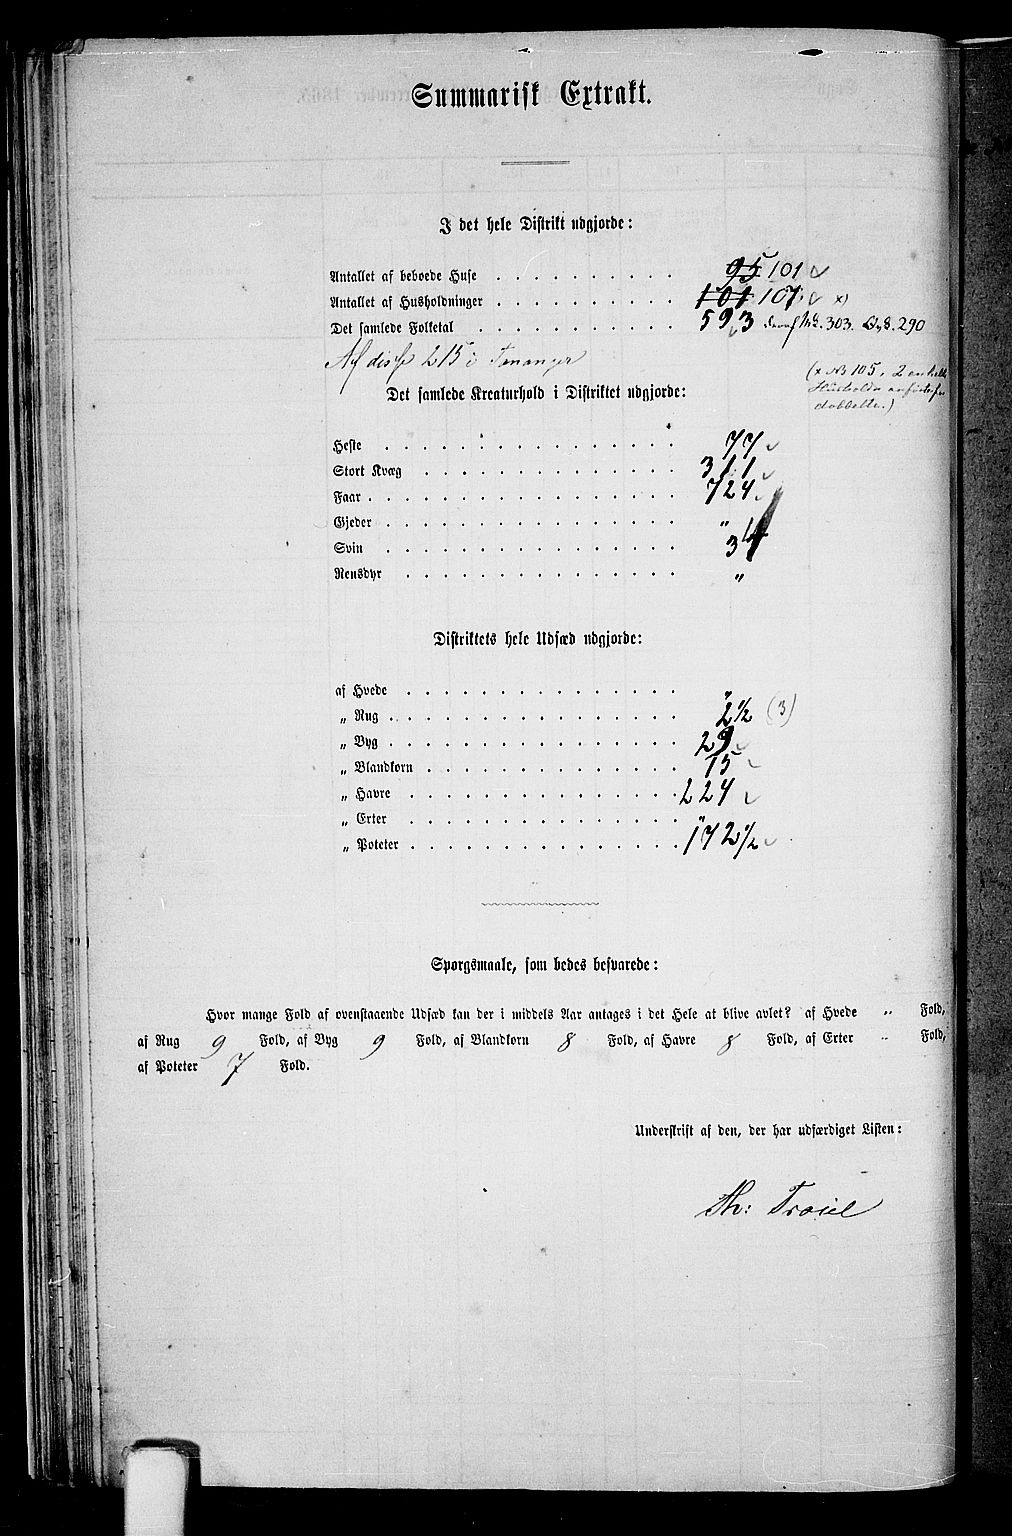 Summarisk Extrakt.
I det hele Distrikt udgjorde:
Antallet af beboede Huse . . . . . . . . . . 95 101
Antallet af Husholdninger . . . . . . . . . . 101 107 x)
Det samlede Folketal . . . . . . . . . . . 593 deraf Mk. 303. Qvk. 290
Af disse 215 i Tananger
(x No 105, 2 enkelte
Husholdn anførte for
dobbelte.)
Det samlede Kreaturhold i Distriktet udgjorde:
Heste . . . . . . . . . . . . . . . . 77
Stort Kvæg . . . . . . . . . . . . . . 311
Faar . . . . . . . . . . . . . . . . . 724
Gjeder . . . . . . . . . . . . . . . . "
Svin . . . . . . . . . . . . . . . . 34
Rensdyr . . . . . . . . . . . . . . . "
Distriktets hele Udsæd udgjorde:
af Hvede . . . . . . . . . . . . . . . "
„ Rug . . . . . . . . . . . . . . . . 2 1/2 (3)
„ Byg . . . . . . . . . . . . . . . . 29
„ Blandkorn . . . . . . . . . . . . . . 15
„ Havre . . . . . . . . . . . . . . . 224
„ Erter . . . . . . . . . . . . . . . "
„ Poteter . . . . . . . . . . . . . . . 172 1/2
Sporgsmaale, som bedes besvarede:
Hvor mange Fold af ovenstaaende Udsæd kan der i middels Aar antages i det Hele at blive avlet? af Hvede " Fold,
af Rug 9 Fold, af Byg 9 Fold, af Blandkorn 8 Fold, af Havre 8 Fold, af Erter " Fold,
af Poteter 7 Fold.
Underskrift af den, der har udfærdiget Listen:
Th: Traiel